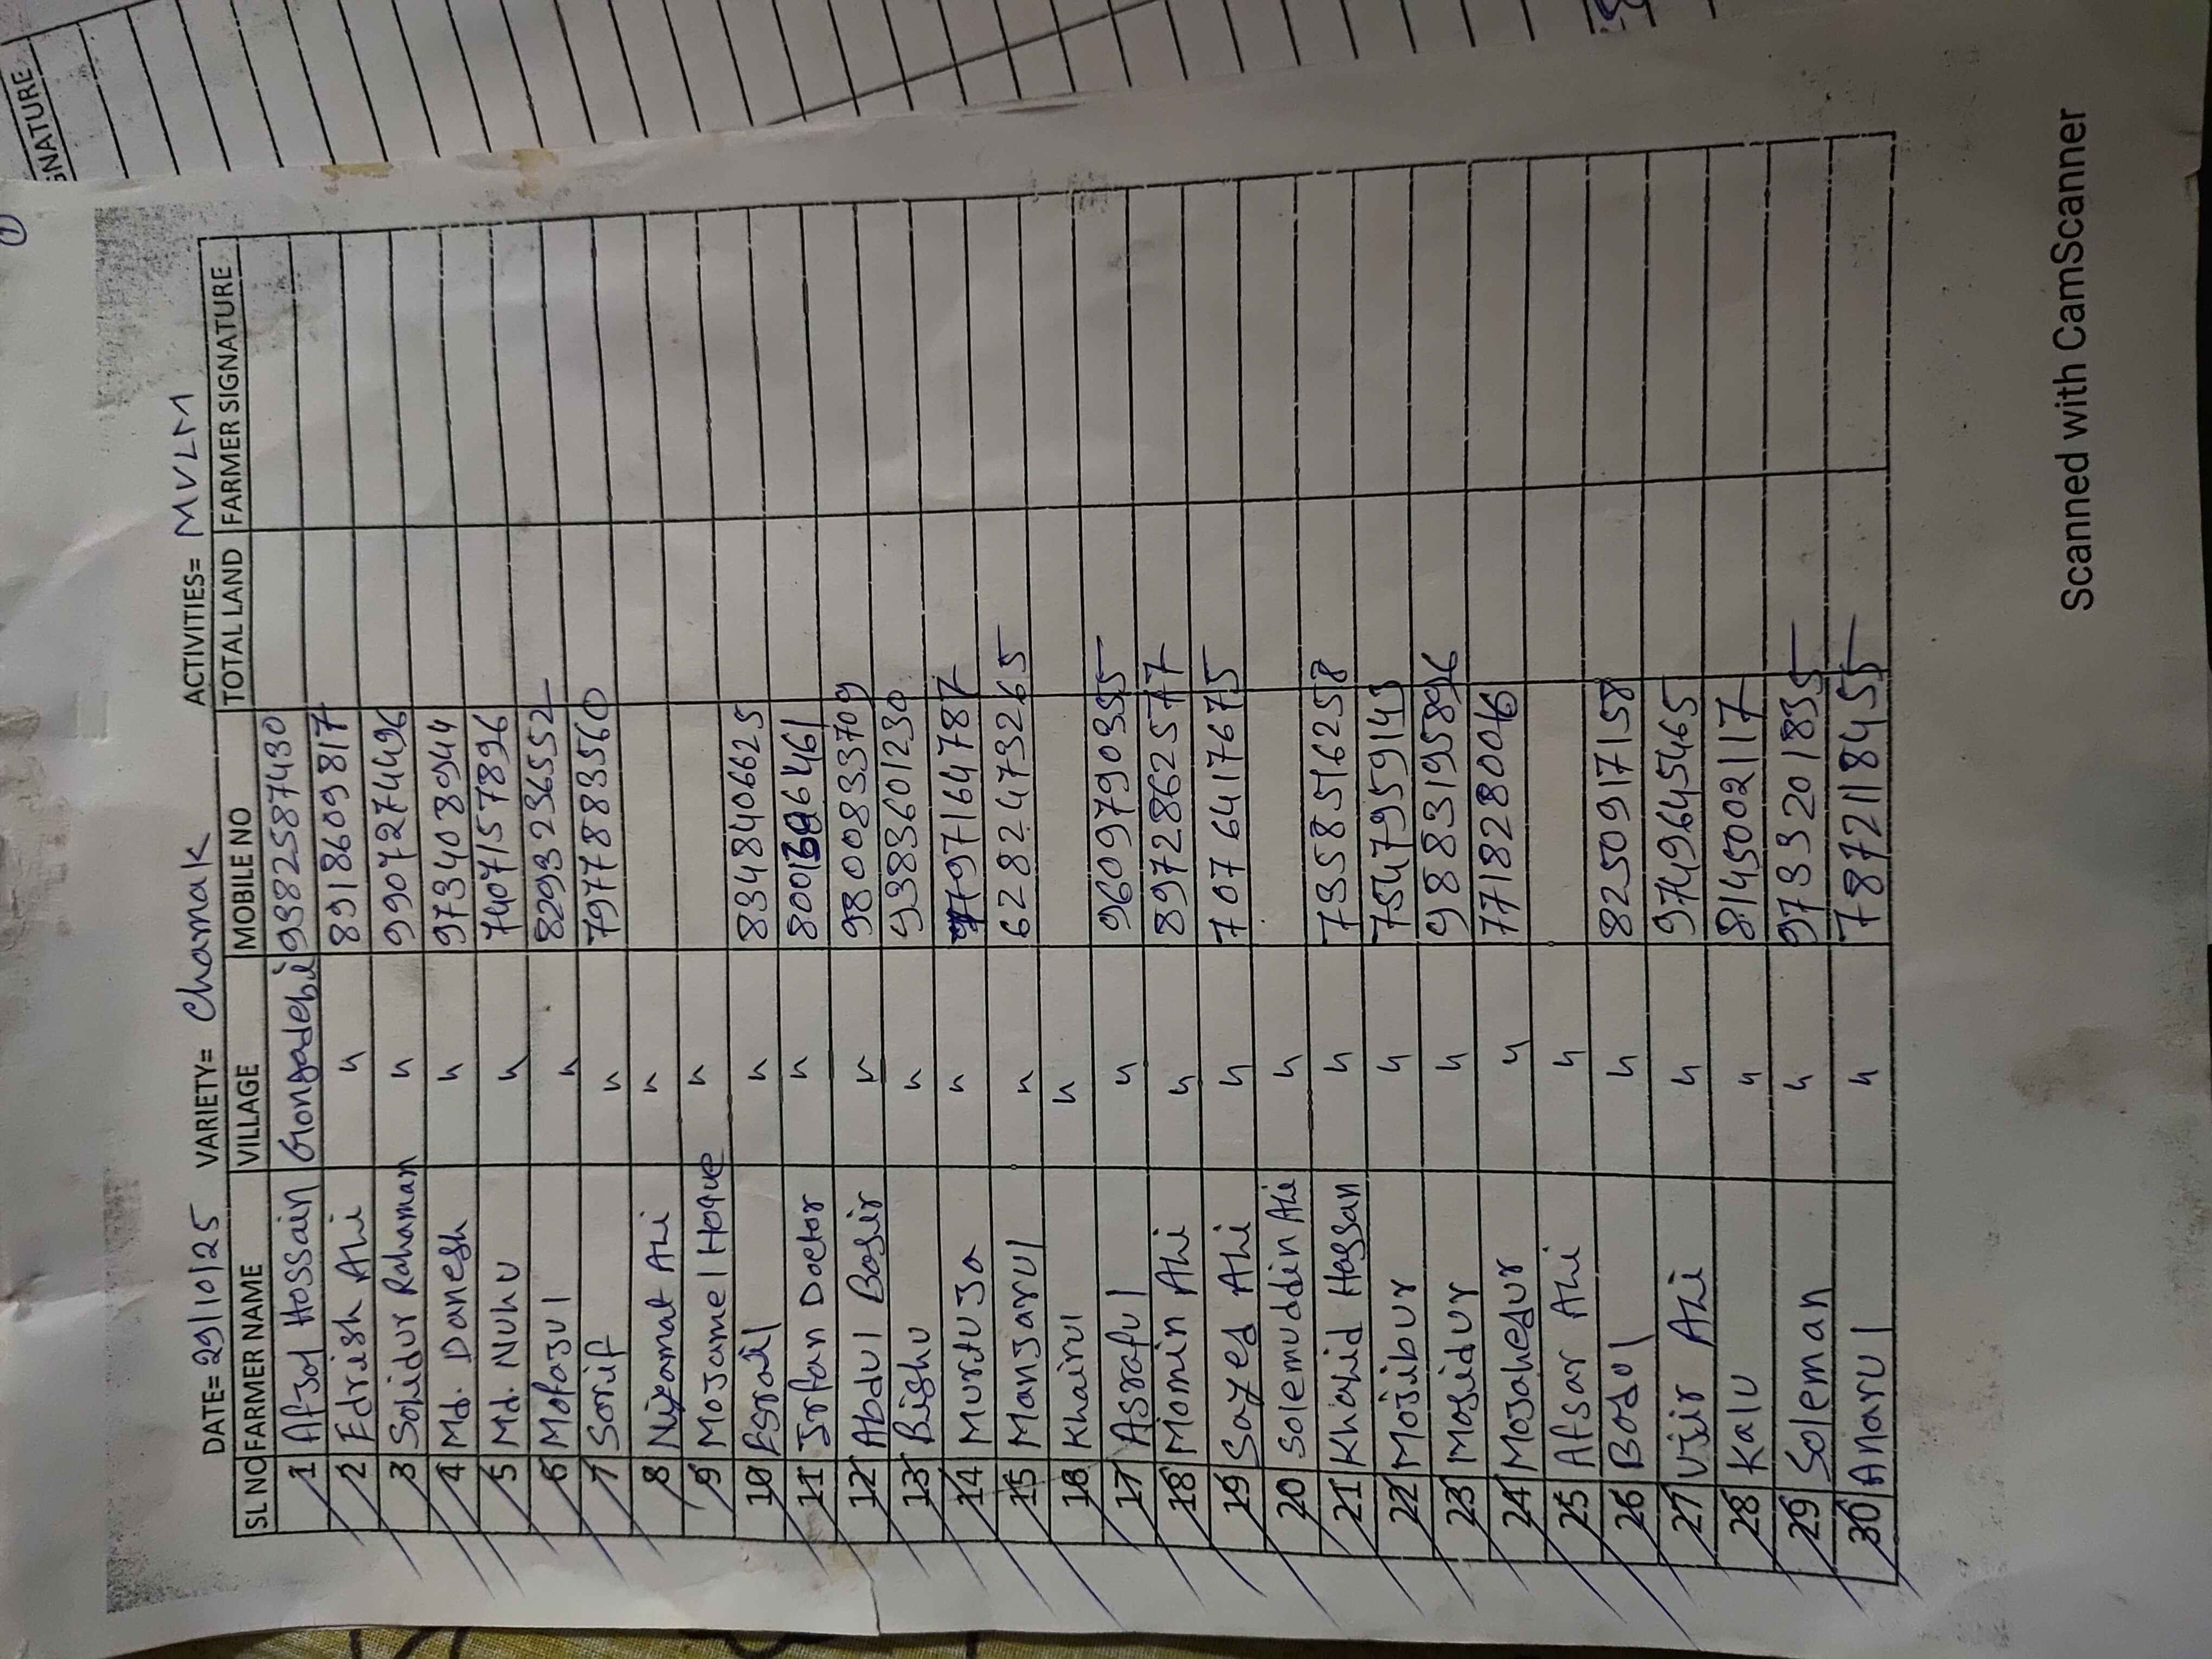 ①
GNATURE
DATE= 29/10/25 VARIETY= Chamak ACTIVITIES= MVLM
SL NO FARMER NAME VILLAGE MOBILE NO TOTAL LAND FARMER SIGNATURE
1 Afzol Hossain Gongadebi 9382587430
2 Edrish Ali " 8918609817
3 Sohidur Rahaman " 9907274496
4 Md. Danesh " 9734080944
5 Md. Nuhu " 7407157896
6 Mofazul " 8293236552
7 Sorif " 7977883560
8 Niyamat Ali "
9 Mojamel Hoque "
10 Esrail " 8348406625
11 Irfan Doctor " 8001396461
12 Abdul Bosir " 9800833709
13 Bishu " 9383601230
14 Murtuja " 9797164787
15 Manjarul " 6282473265
16 Khairul "
17 Asraful " 9609790355
18 Momin Ali " 8972862577
19 Sayed Ali " 7076417675
20 Solemuddin Ali "
21 Khalid Hassan " 7358516258
22 Mojibur " 7547959143
23 Mosidur " 9883195896
24 Mojahedur " 7718280046
25 Afsar Ali "
26 Bodol " 8250917158
27 Ujir Ali " 9749645465
28 Kalu " 8145002117
29 Soleman " 9733201835
30 Anarul " 7872118455
Scanned with CamScanner